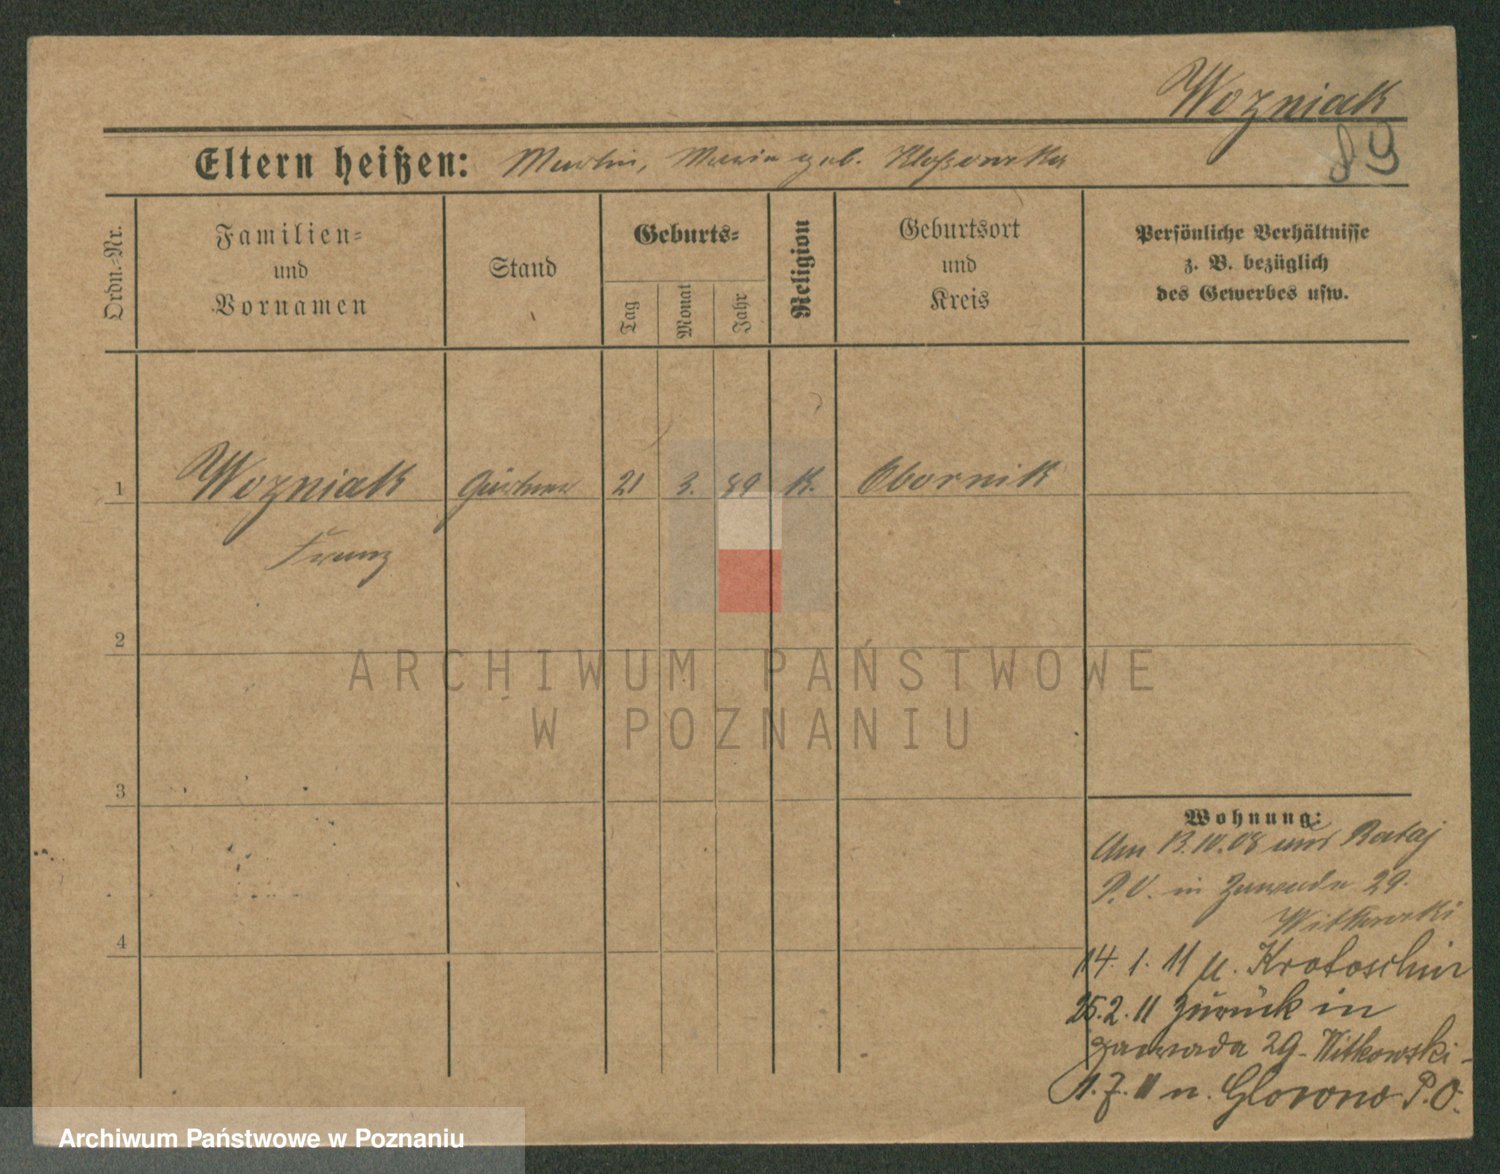 Wozniak
89
Eltern heißen: Martin, Maria geb. Kloßowska
Ordn.-Nr.
Familien-
und
Vornamen
Stand
Geburts-
Tag
Monat
Jahr
Religion
Geburtsort
und
Kreis
Persönliche Verhältnisse
z. B. bezüglich
des Gewerbes usw.
1 Wozniak Gärtner 21 3. 89 K. Obornik
Franz
2
3
4
Wohnung:
Am 13.10.08 aus Rataj
P.O. in Zawade 29.
Witkowski
14. 1. 11 n. Krotoschin
25. 2. 11 zurück in
Zawada 29 - Witkowski -
1. 7. 11 n. Glowno P.O.
ARCHIWUM PAŃSTWOWE
W POZNANIU
Archiwum Państwowe w Poznaniu